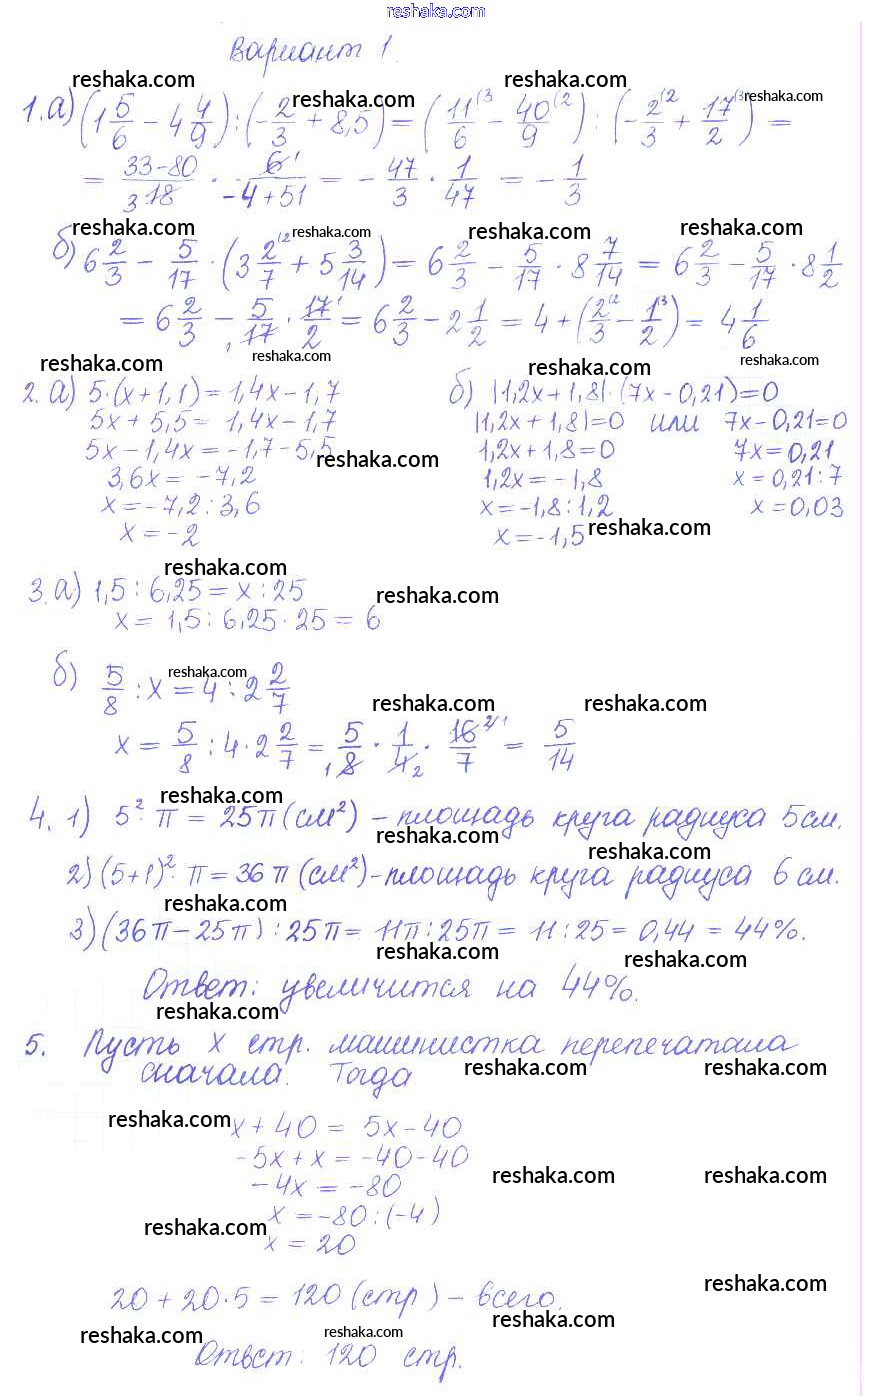 reshaka.com
Вариант 1.
reshaka.com reshaka.com
reshaka.com reshaka.com
1. а) (1 5/6 − 4 4/9) : (−2/3 + 8,5) = (11/6 (3 − 40/9 (2) : (−2/3 (2 + 17/2 (3) =
= 33−80/18 3 · 6 1/−4+51 = −47/3 · 1/47 = −1/3
reshaka.com reshaka.com reshaka.com reshaka.com
б) 6 2/3 − 5/17 · (3 2/7 (2 + 5 3/14) = 6 2/3 − 5/17 · 8 7/14 = 6 2/3 − 5/17 · 8 1/2
= 6 2/3 − 5/17 1 · 17 1/2 = 6 2/3 − 2 1/2 = 4 + (2/3 (2 − 1/2 (3) = 4 1/6
reshaka.com reshaka.com reshaka.com reshaka.com
2. а) 5·(x+1,1)=1,4x−1,7
5x + 5,5 = 1,4x−1,7
5x−1,4x=−1,7−5,5
3,6x = −7,2
x=−7,2:3,6
x=−2
б) |1,2x+1,8|·(7x−0,21)=0
|1,2x+1,8|=0 или 7x−0,21=0
1,2x+1,8=0 7x=0,21
1,2x=−1,8 x=0,21:7
x=−1,8:1,2 x=0,03
x=−1,5
reshaka.com
reshaka.com
reshaka.com
reshaka.com
3. а) 1,5 : 6,25 = x : 25
x = 1,5 : 6,25 · 25 = 6
reshaka.com
б) 5/8 : x = 4 : 2 2/7
reshaka.com reshaka.com
x = 5/8 : 4 · 2 2/7 = 5/8 1 · 1/4 2 · 16 2 1/7 = 5/14
reshaka.com
4. 1) 5² · π = 25π (см²) − площадь круга радиуса 5см.
reshaka.com reshaka.com
2) (5+1)² · π = 36π (см²) − площадь круга радиуса 6 см.
reshaka.com
3) (36π − 25π) : 25π = 11π : 25π = 11 : 25 = 0,44 = 44%.
reshaka.com reshaka.com
Ответ: увеличится на 44%.
reshaka.com
5. Пусть x стр. машинистка перепечатала
сначала. Тогда
reshaka.com reshaka.com
reshaka.com
x + 40 = 5x − 40
−5x + x = −40−40
−4x = −80
reshaka.com reshaka.com
x = −80 : (−4)
reshaka.com
x = 20
reshaka.com
20 + 20·5 = 120 (стр) − всего.
reshaka.com reshaka.com reshaka.com
Ответ: 120 стр.